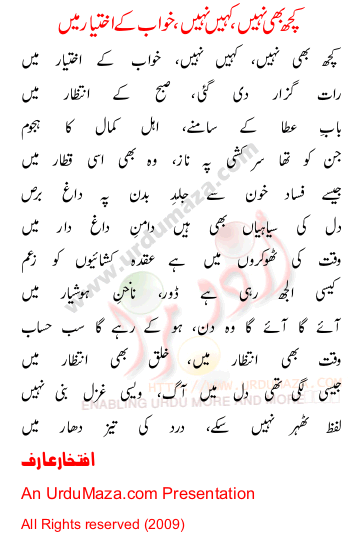 کچھ بھی نہیں، کہیں نہیں، خواب کے اختیار میں
کچھ بھی نہیں، کہیں نہیں، خواب کے اختیار میں
رات گزار دی گئی، صبح کے انتظار میں
باب عطا کے سامنے، اہل کمال کا ہجوم
جن کو تھا سرکشی پہ ناز، وہ بھی اسی قطار میں
جیسے فساد خون سے جلد بدن پہ داغ برص
دل کی سیاہیاں بھی ہیں دامن داغ دار میں
وقت کی ٹھوکروں میں ہے عقدہ کشائیوں کو زعم
کیسی الجھ رہی ہے ڈور، ناخن ہوشیار میں
آئے گا آئے گا وہ دن، ہو کے رہے گا سب حساب
وقت بھی انتظار میں، خلق بھی انتظار میں
جیسی لگی تھی دل میں آگ، ویسی غزل بنی نہیں
لفظ ٹھہر نہیں سکے، درد کی تیز دھار میں
افتخار عارف
An UrduMaza.com Presentation
All Rights reserved (2009)
www.urdumaza.com
HTTP://WWW.URDUMAZA.COM
ENABLING URDU MORE AND MORE